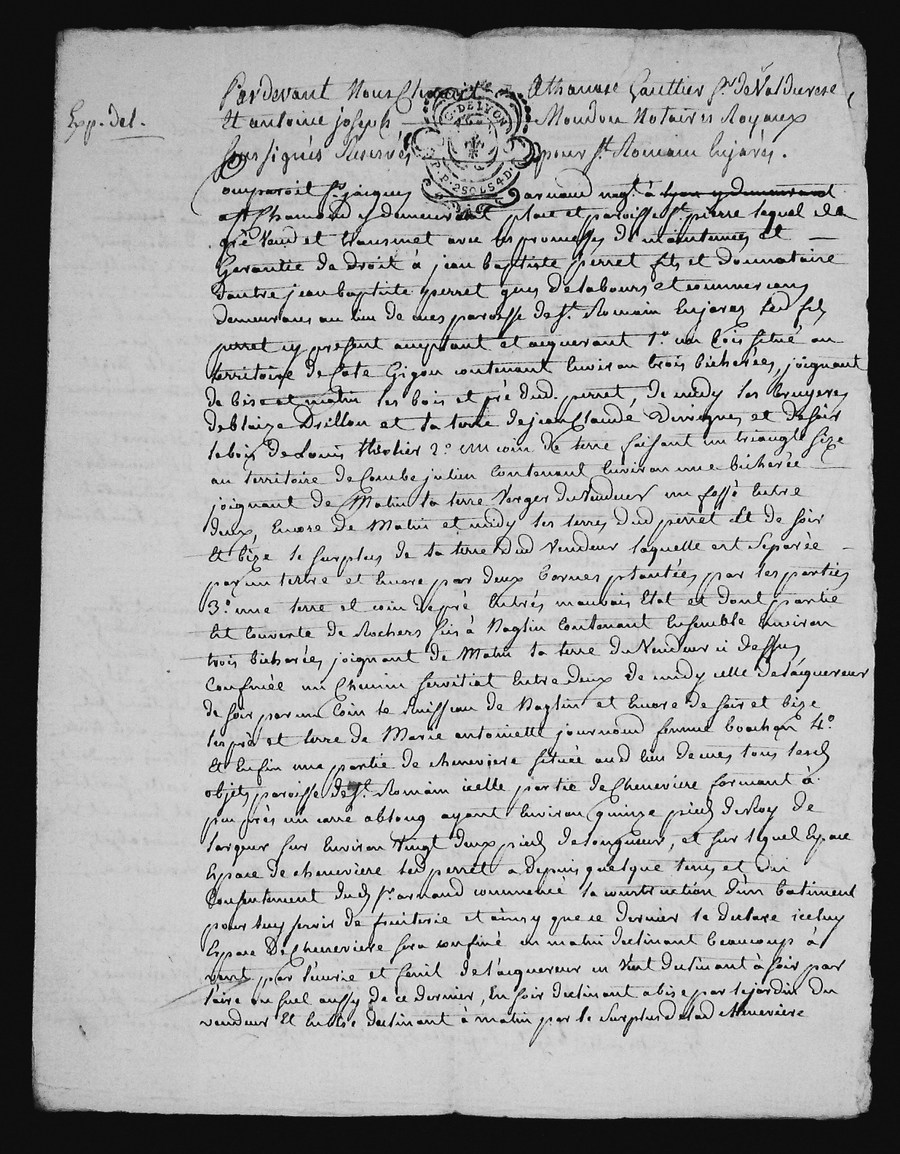 Exp. del.
Pardevant Nous Athanase Gauttier Sr. de Valdurese
Et antoine joseph Moudon Notaires Royaux
Soussignés Reservés pour St. Romain Enjarés.
G. DE LYON
P.P. 2 SOLS 4 D.
Comparoit Sr. jacques arnaud negt. à Lyon y demeurant
à St. Chamond y demeurant place et paroisse St. pierre lequel de
gré Vend et transmet avec les promesses de maintenues et
Garantie de droit à jean baptiste perret fils et donnataire
d'autre jean baptiste perret gens de labours et commerçans
demeurans au lieu de mes paroisse de St. Romain Enjarés led. fils
perret icy présent acceptant et acquerant 1o. un bois situé au
territoire de Cote Gigon contenant Environ trois bicherées, joignant
de bize et matin les bois et pré dud. perret, de midy les bruyeres
de blaize Drillon et la terre de jean Claude et de soir
le bois de Louis theolier 2o. un coin de terre faisant un triangle size
au territoire de Combe julien contenant Environ une bicherée
joignant de Matin la terre Verger du Vendeur un fossé Entre
deux, Encore de Matin et midy les terres dud perret Et de soir
Et bize le surplus de la terre dud Vendeur laquelle est separée
par un tertre et Encore par deux bornes plantées par les parties
3o. une terre et coin de pré En trés mauvais Etat et dont partie
Est Couverte de Rochers sis à Naglin Contenant Ensemble Environ
trois bicherées joignant de Matin la terre du Vendeur ci dessus
Confinée un Chemin servitial Entre deux de midy celle de l'acquereur
de soir par un Coin le Ruisseau de Naglin et Encore de soir et bize
les pré et terre de Marie antoinette journoud femme bonchon 4o.
Et Enfin une partie de cheneviere située aud. lieu de mes tous lesd.
objets paroisse de St. Romain icelle partie de Cheneviere formant à
peu près un carré oblong ayant Environ quinze pieds de Roy de
largeur sur Environ Vingt deux pieds de longueur, et sur lequel Espace
Espace de cheneviere led. perret a depuis quelque tems et du
Consentement dud. Sr. arnaud commencé la construction d'un batiment
pour luy servir de fruiterie et ainsy que ce dernier le declare iceluy
Espace De Cheneviere sera confiné en matin declinant beaucoup à
vent par l'écurie et fenil de l'acquereur en Vent declinant à soir par
l'aire ou suel aussy de ce dernier, En soir declinant a bise par le jardin du
vendeur Et En bise declinant à matin par le surplus de lad. cheneviere